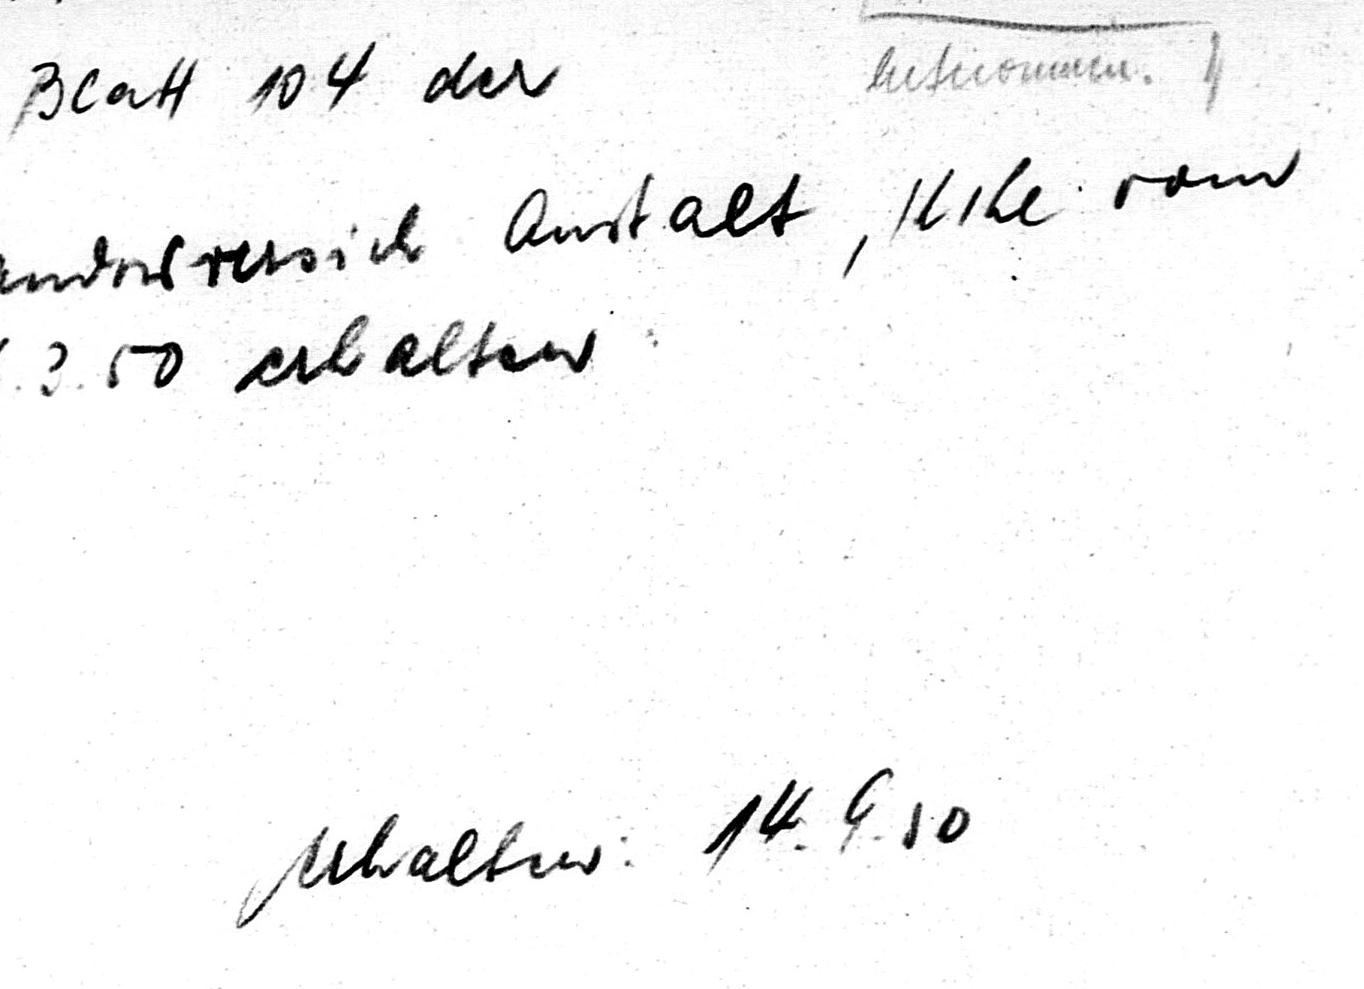 Blatt 104 der
entnommen.
Landesversich Anstalt, Kthe vom
.3.50 erhalten
Erhalten: 14.9.50